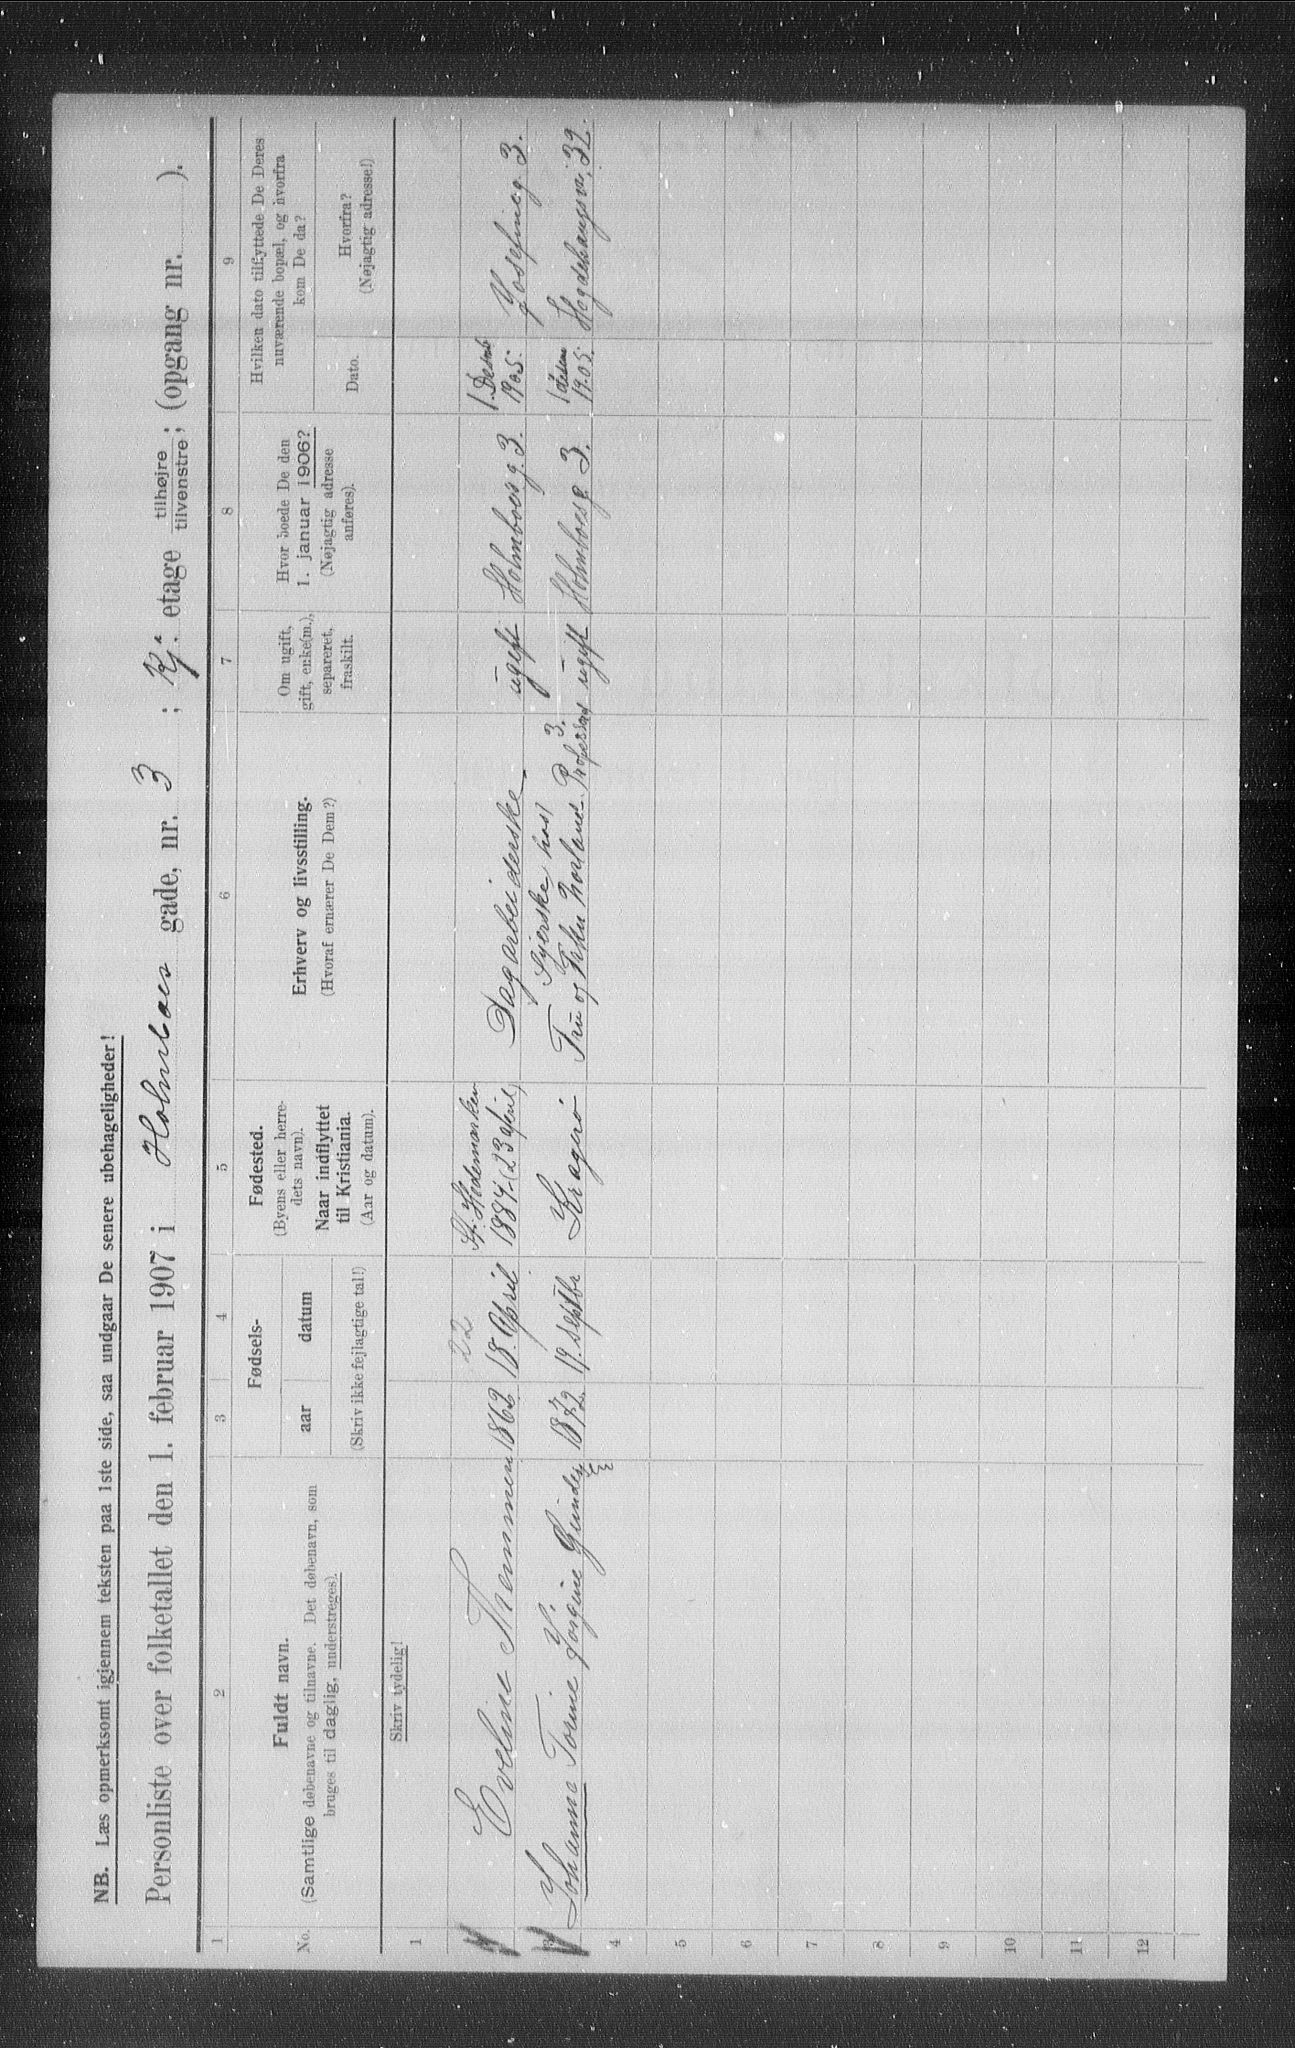 NB. Læs opmerksomt igjennem teksten paa 1ste side, saa undgaar De senere ubehageligheder!
Personliste over folketallet den 1. februar 1907 i Holmboes gade, nr. 3 ; Kj. etage tilhøjre tilvenstre; (opgang nr. ).
1 2 3 4 5 6 7 8 9
No.
Fuldt navn.
(Samtlige døbenavne og tilnavne. Det døbenavn, som
bruges til daglig, understreges).
Fødsels-
aar datum
(Skriv ikke fejlagtige tal!)
Fødested.
(Byens eller herre-
dets navn).
Naar indflyttet
til Kristiania.
(Aar og datum).
Erhverv og livsstilling.
(Hvoraf ernærer De Dem?)
Om ugift,
gift, enke(m.),
separeret,
fraskilt.
Hvor boede De den
1. januar 1906?
(Nøjagtig adresse
anføres).
Hvilken dato tilflyttede De Deres
nuværende bopæl, og hvorfra
kom De da?
Dato.
Hvorfra?
(Nøjagtig adresse!)
Skriv tydelig!
1
22
Eveline Themmen 1862 18. April
St. Hedemarken
1884 (23 April)
Dagarbeiderske
ugift
Holmboesg. 3.
1. Desmb
1905.
Josefineg. 3.
3
Johanne Torine Jørgine Gunder
1872 19. Septbr
Kragerø
Syerske hos
Fru og Frøken
ugift
Holmboesg 3.
1
1905.
Hegdehaugsvei, 32.
4
5
6
7
8
9
10
11
12